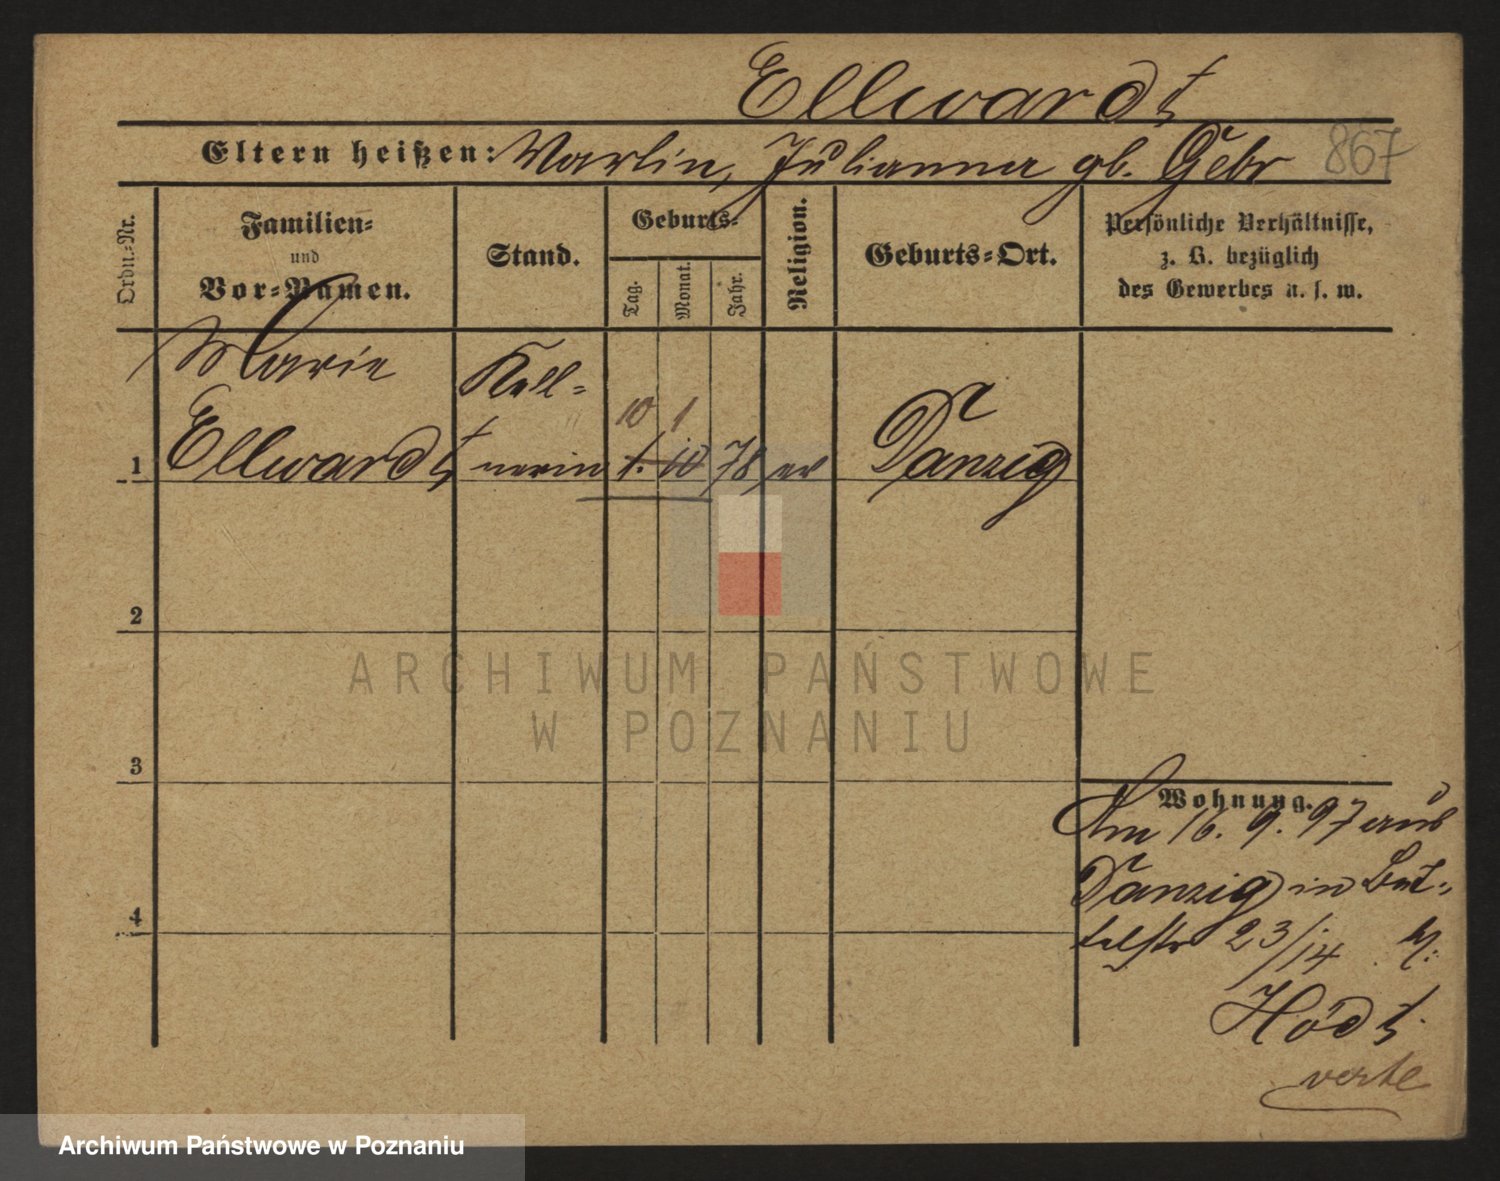 Ellwardt
Eltern heißen: Martin, Julianna gb. Gehr 867
Ordn.-Nr.
Familien-
und
Vor-Namen.
Stand.
Geburts-
Tag.
Monat.
Jahr.
Religion.
Geburts-Ort.
Persönliche Verhältnisse,
z. B. bezüglich
des Gewerbes u. s. w.
Marie Kell-
10 1
1 Ellwardt nerin 1. 10 78 ev Danzig
2
3
4
Wohnung.
Am 16. 9. 97 aus
Danzig in Büt-
telstr 23/14 b/.
Hödt
verte
ARCHIWUM PAŃSTWOWE
W POZNANIU
Archiwum Państwowe w Poznaniu